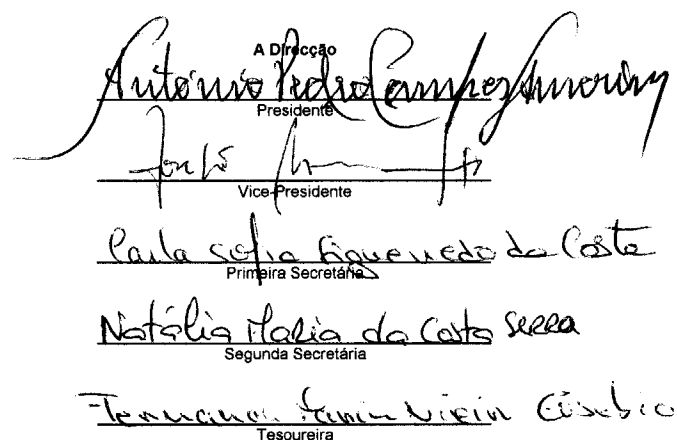 A Direcção
António Pedro
Presidente
Vice-Presidente
Paula Sofia Figueiredo da Costa
Primeira Secretária
Natália Maria da Costa Serra
Segunda Secretária
Eusébio
Tesoureira